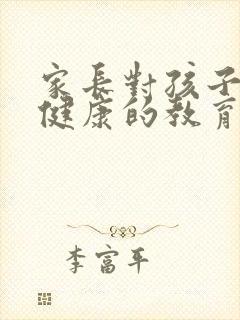 家長對孩子
健康的教育
李富年